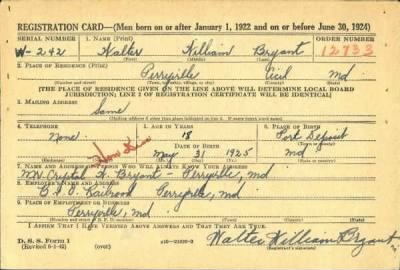 REGISTRATION CARD—(Men born on or after January 1, 1922 and on or before June 30, 1924)
SERIAL NUMBER 1. NAME (Print) ORDER NUMBER
W-242 Walter William Bryant 12733
(First) (Middle) (Last)
2. PLACE OF RESIDENCE (Print)
Perryville Cecil Md
(Number and street) (Town, township, village, or city) (County) (State)
[THE PLACE OF RESIDENCE GIVEN ON THE LINE ABOVE WILL DETERMINE LOCAL BOARD
JURISDICTION; LINE 2 OF REGISTRATION CERTIFICATE WILL BE IDENTICAL]
3. MAILING ADDRESS
Same
[Mailing address if other than place indicated on line 2. If same insert word same]
4. TELEPHONE 5. AGE IN YEARS 6. PLACE OF BIRTH
None 18 Port Deposit
DATE OF BIRTH
May 31 1925 Md
7. NAME AND ADDRESS OF PERSON WHO WILL ALWAYS KNOW YOUR ADDRESS
Mrs Crystal H. Bryant - Perryville, Md
8. EMPLOYER'S NAME AND ADDRESS
B. & O. Railroad Perryville, md
9. PLACE OF EMPLOYMENT OR BUSINESS
Perryville, md
(Number and street or R. F. D. number) (Town) (County) (State)
I AFFIRM THAT I HAVE VERIFIED ABOVE ANSWERS AND THAT THEY ARE TRUE.
D. S. S. Form 1
(Revised 6-9-42) (over) Walter William Bryant
(Registrant's signature)